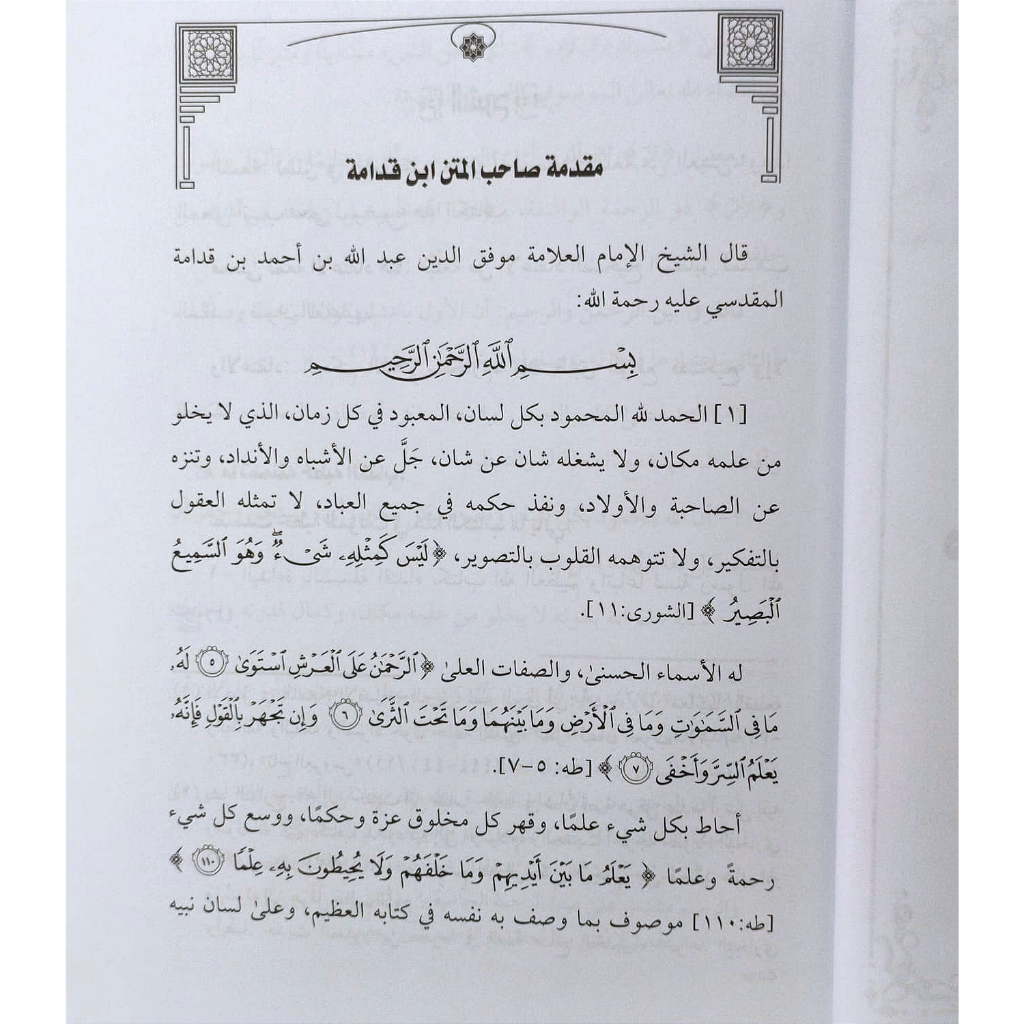 مقدمة صاحب المتن ابن قدامة
قال الشيخ الإمام العلامة موفق الدين عبد الله بن أحمد بن قدامة
المقدسي عليه رحمة الله:
بِسْمِ ٱللَّهِ ٱلرَّحْمَٰنِ ٱلرَّحِيمِ
[١] الحمد لله المحمود بكل لسان، المعبود في كل زمان، الذي لا يخلو
من علمه مكان، ولا يشغله شان عن شان، جَلَّ عن الأشباه والأنداد، وتنزه
عن الصاحبة والأولاد، ونفذ حكمه في جميع العباد، لا تمثله العقول
بالتفكير، ولا تتوهمه القلوب بالتصوير، ﴿لَيْسَ كَمِثْلِهِۦ شَىْءٌ ۖ وَهُوَ ٱلسَّمِيعُ
ٱلْبَصِيرُ ﴾ [الشورى:١١].
له الأسماء الحسنىٰ، والصفات العلىٰ ﴿ٱلرَّحْمَٰنُ عَلَى ٱلْعَرْشِ ٱسْتَوَىٰ ٥ لَهُۥ
مَا فِى ٱلسَّمَٰوَٰتِ وَمَا فِى ٱلْأَرْضِ وَمَا بَيْنَهُمَا وَمَا تَحْتَ ٱلثَّرَىٰ ٦ وَإِن تَجْهَرْ بِٱلْقَوْلِ فَإِنَّهُۥ
يَعْلَمُ ٱلسِّرَّ وَأَخْفَى ٧ ﴾ [طه: ٥-٧].
أحاط بكل شيء علمًا، وقهر كل مخلوق عزة وحكمًا، ووسع كل شيء
رحمةً وعلمًا ﴿ يَعْلَمُ مَا بَيْنَ أَيْدِيهِمْ وَمَا خَلْفَهُمْ وَلَا يُحِيطُونَ بِهِۦ عِلْمًا ١١٠ ﴾
[طه:١١٠] موصوف بما وصف به نفسه في كتابه العظيم، وعلىٰ لسان نبيه